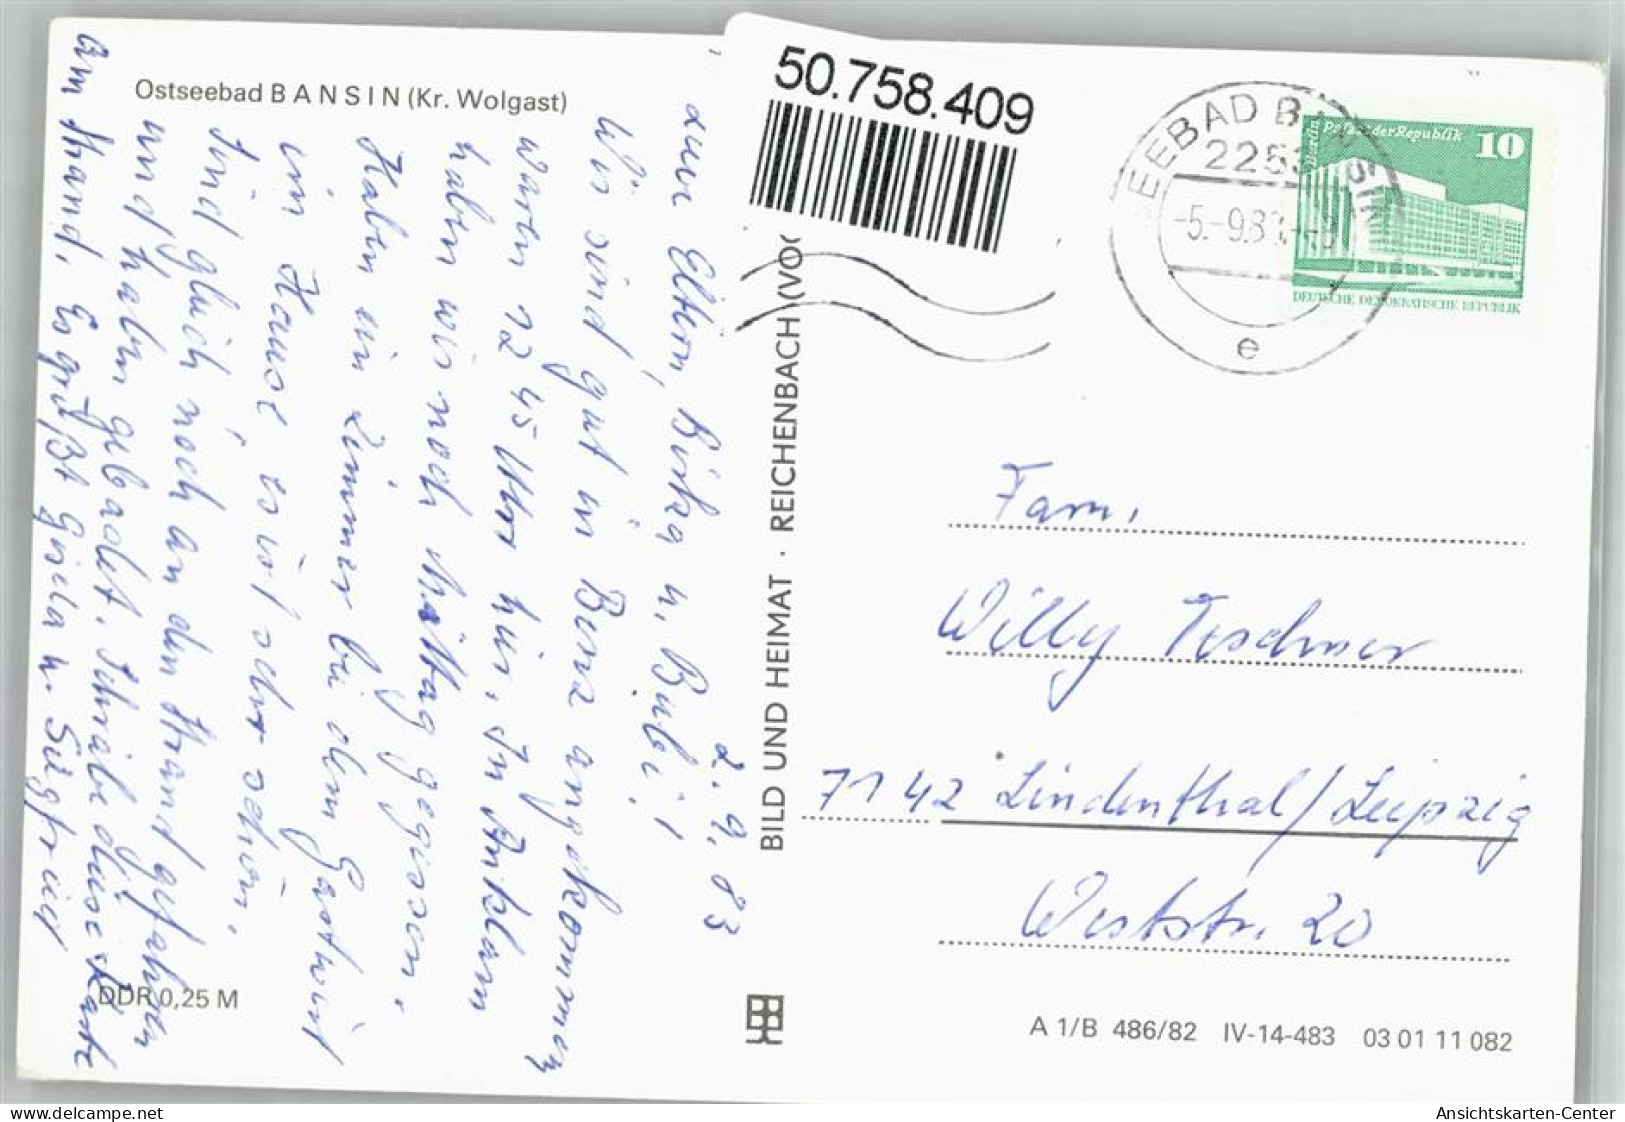 Ostseebad BANSIN (Kr. Wolgast)
2.9.83
Eltern, Birka u. Bubi!
Wir sind gut in Benz angekommen
waren 12 45 Uhr hier, in Anklam
haben wir noch Mittag gegessen,
Haben ein Zimmer bei dem Gastwirt
im Hause, es ist sehr schön,
Sind gleich noch an den Strand gefahren
und haben gebadet. Schreibe diese Karte
am Strand. Es grüßt Gisela u. Siegfried
DDR 0,25 M
BILD UND HEIMAT · REICHENBACH (VO
50.758.409
SEEBAD BANSIN
2253
-5.-9.83
e
Berlin
Palast der Republik
10
DEUTSCHE DEMOKRATISCHE REPUBLIK
Fam.
Willy Teschner
7142 Lindenthal/Leipzig
Weststr. 20
A 1/B 486/82 IV-14-483 03 01 11 082
delcampe.net
Ansichtskarten-Center